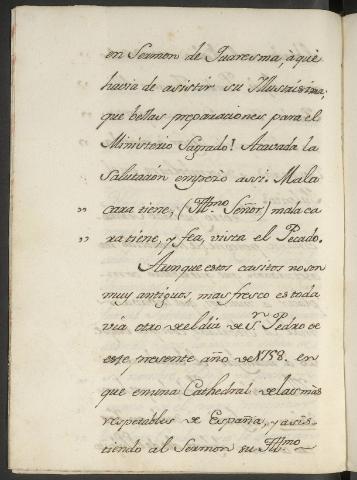 en Sermon de Quaresma, à que
havia de asistir su Illustrissima;
que bellas preparaciones para el
Ministerio Sagrado! Acavada la
Salutacion empezo assi. Mala
„ cara tiene, (Ill.mo Señor) mala ca
„ ra tiene, y fea, vista el Pecado.
Aunque estos casitos no son
muy antiguos, mas fresco es toda
via otro del dia de S.n Pedro de
este presente año de 1758. en
que en una Cathedral de las mas
respetables de España, y asis-
tiendo al Sermon su Ill.mo